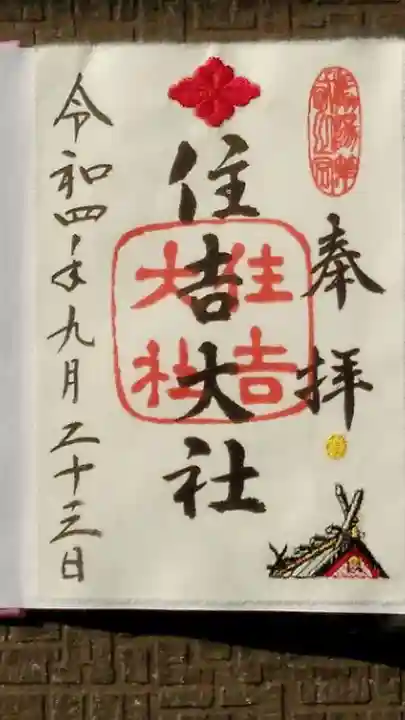 奉拝
住吉大社
住吉大社
令和四年九月二十三日